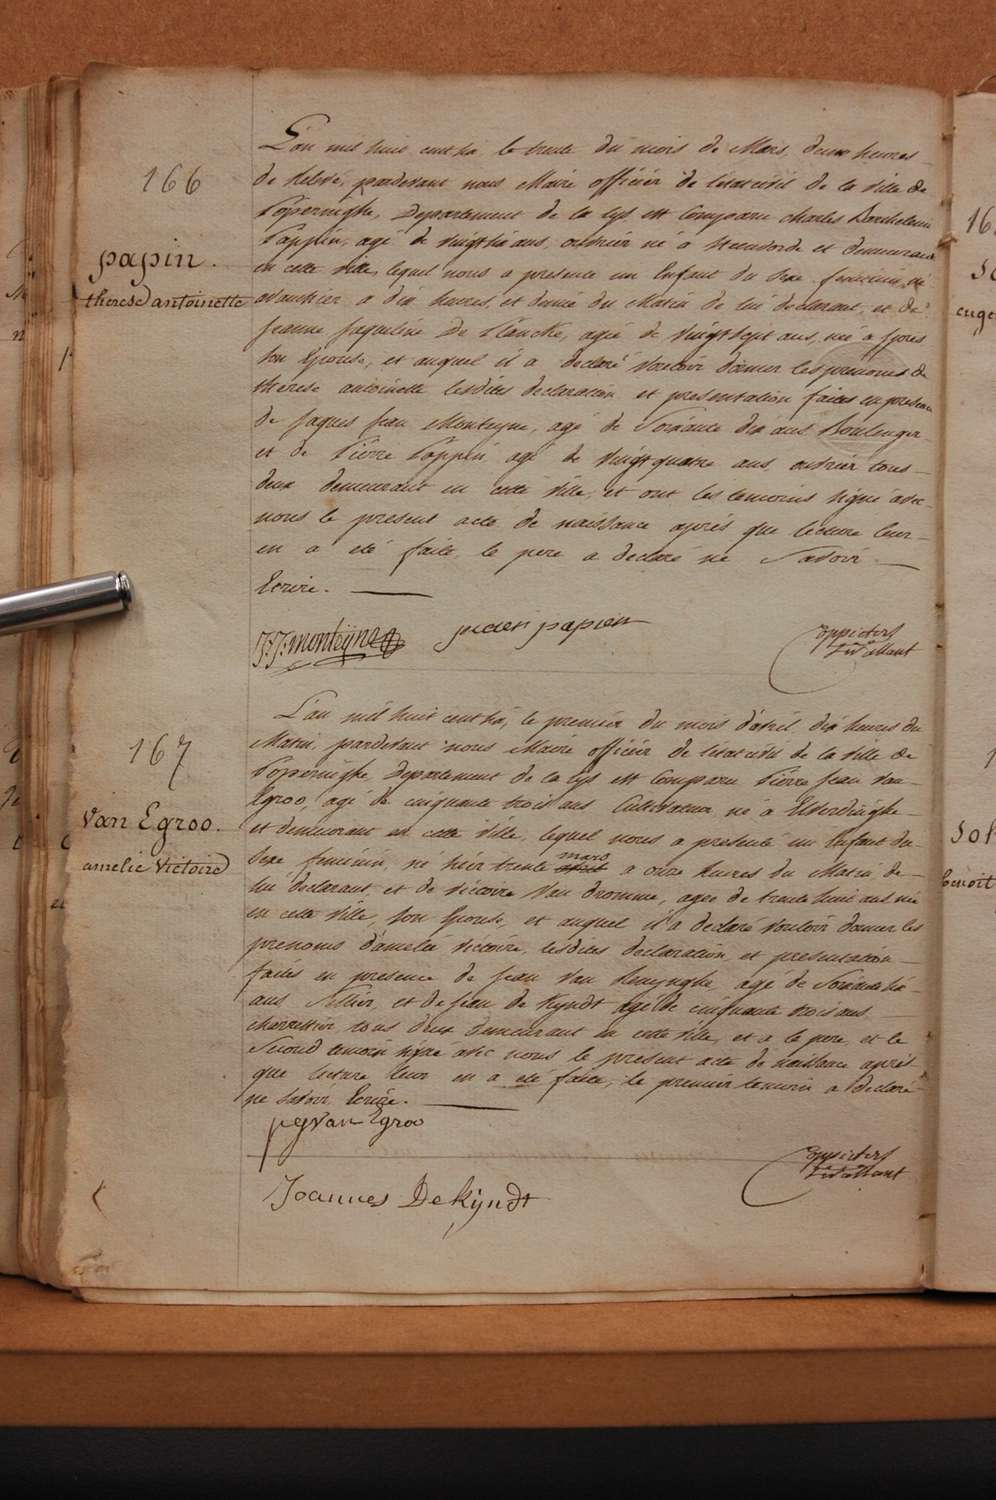 166
papin.
therese antoinette
L'an mil huit cent six, le trente du mois de Mars, deux heures
de relevé, pardevant nous Maire officier de l'état civil de la ville de
Poperinghe, Departement de la Lys est Comparu Charles Bartholomé
Pappin, agé de vingt six ans, ouvrier né à Steenvorde et demeurant
en cette ville, lequel nous a presenté un Enfant du Sexe feminin, né
avanthier a dix heures, et demie du Matin de lui declarant, et de
Jeanne Jaqueline De Plancke, agée de vingt sept ans, née a Ypres
son Epouse, et auquel il a declaré vouloir donner les prenoms de
therese antoinette lesdites declaration et presentation faites en presence
de Jaques Jean Monteyne, agé de Soixante dix ans Boulenger
et de Pierre Pappin agé de vingt quatre ans, ouvrier tous
deux demeurant en cette ville, et ont les temoins signé avec
nous le present acte de naissance aprés que lecture leur
en a eté faite, le pere a declaré ne Savoir
Ecrire.
J:J: monteyne papien
167
Van Egroo.
amelie Victoire
L'an mil huit cent six, le premier du mois d'avril, dix heures du
Matin, pardevant nous Maire officier de l'état civil de la ville de
Poperinghe, Departement de la Lys est Comparu Pierre Jean Van
Egroo, agé de cinquante trois ans Cultivateur, né à Elverdinghe
et demeurant en cette ville, lequel nous a presenté un Enfant du
Sexe feminin, né hier trente mars a onze heures du Matin, de
lui declarant, et de victoire Van Dromme, agée de trente huit ans née
en cette ville, son Epouse, et auquel il a declaré vouloir donner les
prenoms d'amelie victoire, lesdites declaration, et presentation
faites en presence de Jean Van Renynghe, agé de Soixante six
ans Sellier, et de Jean de Kyndt agé de cinquante trois ans
charrettier, tous deux demeurant en cette ville, et a le pere, et le
Second temoin signé avec nous le present acte de naissance aprés
que lecture leur en a eté faite, le premier temoin a declaré
ne Savoir Ecrire.
pj Van Egroo
Joannes De Kyndt